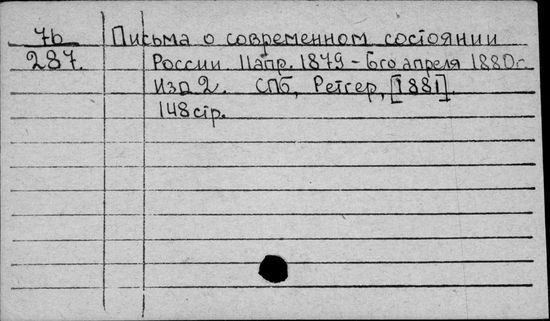 7б Письма о современном состоянии
287. России 11 апр. 1879 - 6го апреля 1880г.
Изд 2. СПб, Ретгер, [1881].
148 стр.